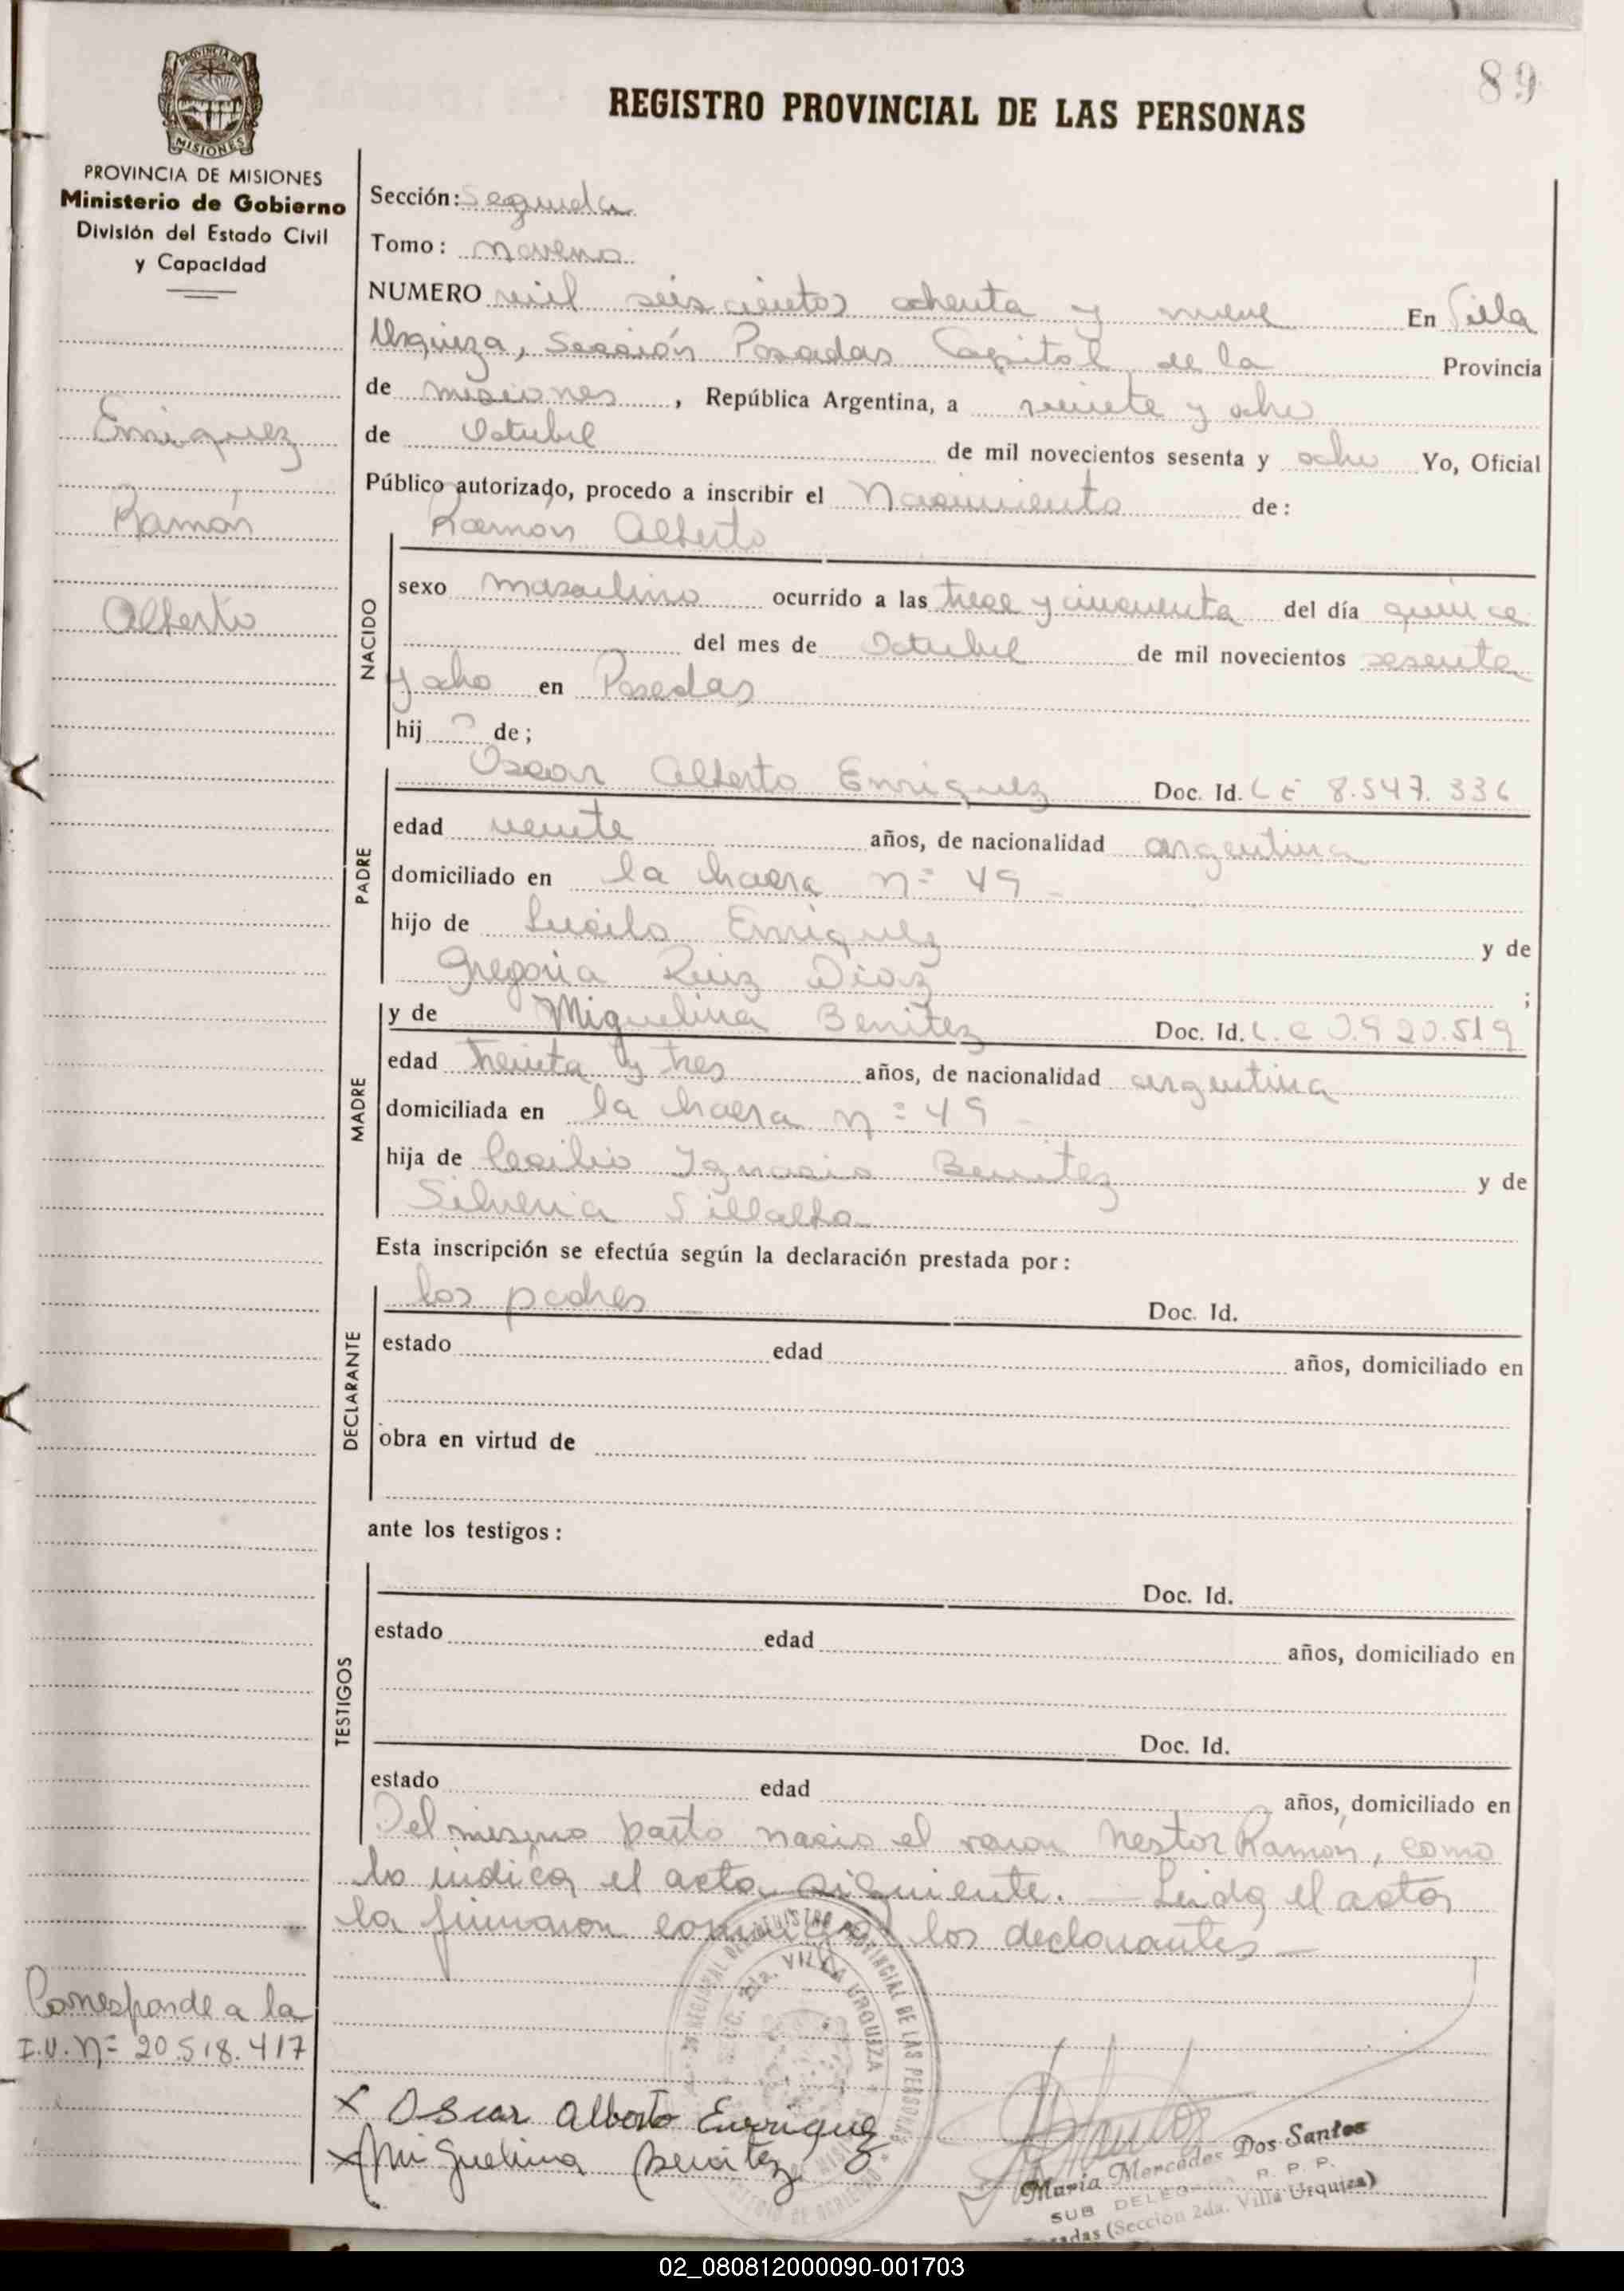 89
REGISTRO PROVINCIAL DE LAS PERSONAS
PROVINCIA DE
MISIONES
PROVINCIA DE MISIONES
Ministerio de Gobierno
División del Estado Civil
y Capacidad
Enriquez
Ramón
Alberto
Sección: Segunda
Tomo: noveno
NUMERO mil seiscientos ochenta y nueve En Villa
Urquiza, Sección Posadas Capital de la Provincia
de misiones, República Argentina, a veinte y ocho
de Octubre de mil novecientos sesenta y ocho Yo, Oficial
Público autorizado, procedo a inscribir el Nacimiento de:
Ramón Alberto
NACIDO
sexo masculino ocurrido a las trece y cincuenta del día quince
del mes de Octubre de mil novecientos sesenta
y ocho en Posadas
hijo de;
PADRE
Oscar Alberto Enriquez Doc. Id. L E 8.547.336
edad veinte años, de nacionalidad argentina
domiciliado en la chacra nº 49
hijo de Lucilo Enriquez y de
Gregoria Ruiz Diaz ;
MADRE
y de Miguelina Benitez Doc. Id. L.C 0.920.519
edad treinta y tres años, de nacionalidad argentina
domiciliada en la chacra nº 49
hija de Cecilio Ignacio Benitez y de
Silveria Villalba
Esta inscripción se efectúa según la declaración prestada por:
DECLARANTE
los padres Doc. Id.
estado edad años, domiciliado en
obra en virtud de
ante los testigos:
TESTIGOS
Doc. Id.
estado edad años, domiciliado en
Doc. Id.
estado edad años, domiciliado en
Del mismo parto nacio el varon Nestor Ramón, como
lo indica el acta siguiente. — Leida el acta
la firmaron conmigo los declarantes —
Corresponde a la
I.U. Nº 20.518.417
REGISTRO PROVINCIAL DE LAS PERSONAS
SECC. 2da. VILLA URQUIZA
x Oscar Alberto Enriquez
x Miguelina Benitez
Maria Mercedes Dos Santos
SUB DELEGADA R. P. P.
Posadas (Sección 2da. Villa Urquiza)
02_080812000090-001703